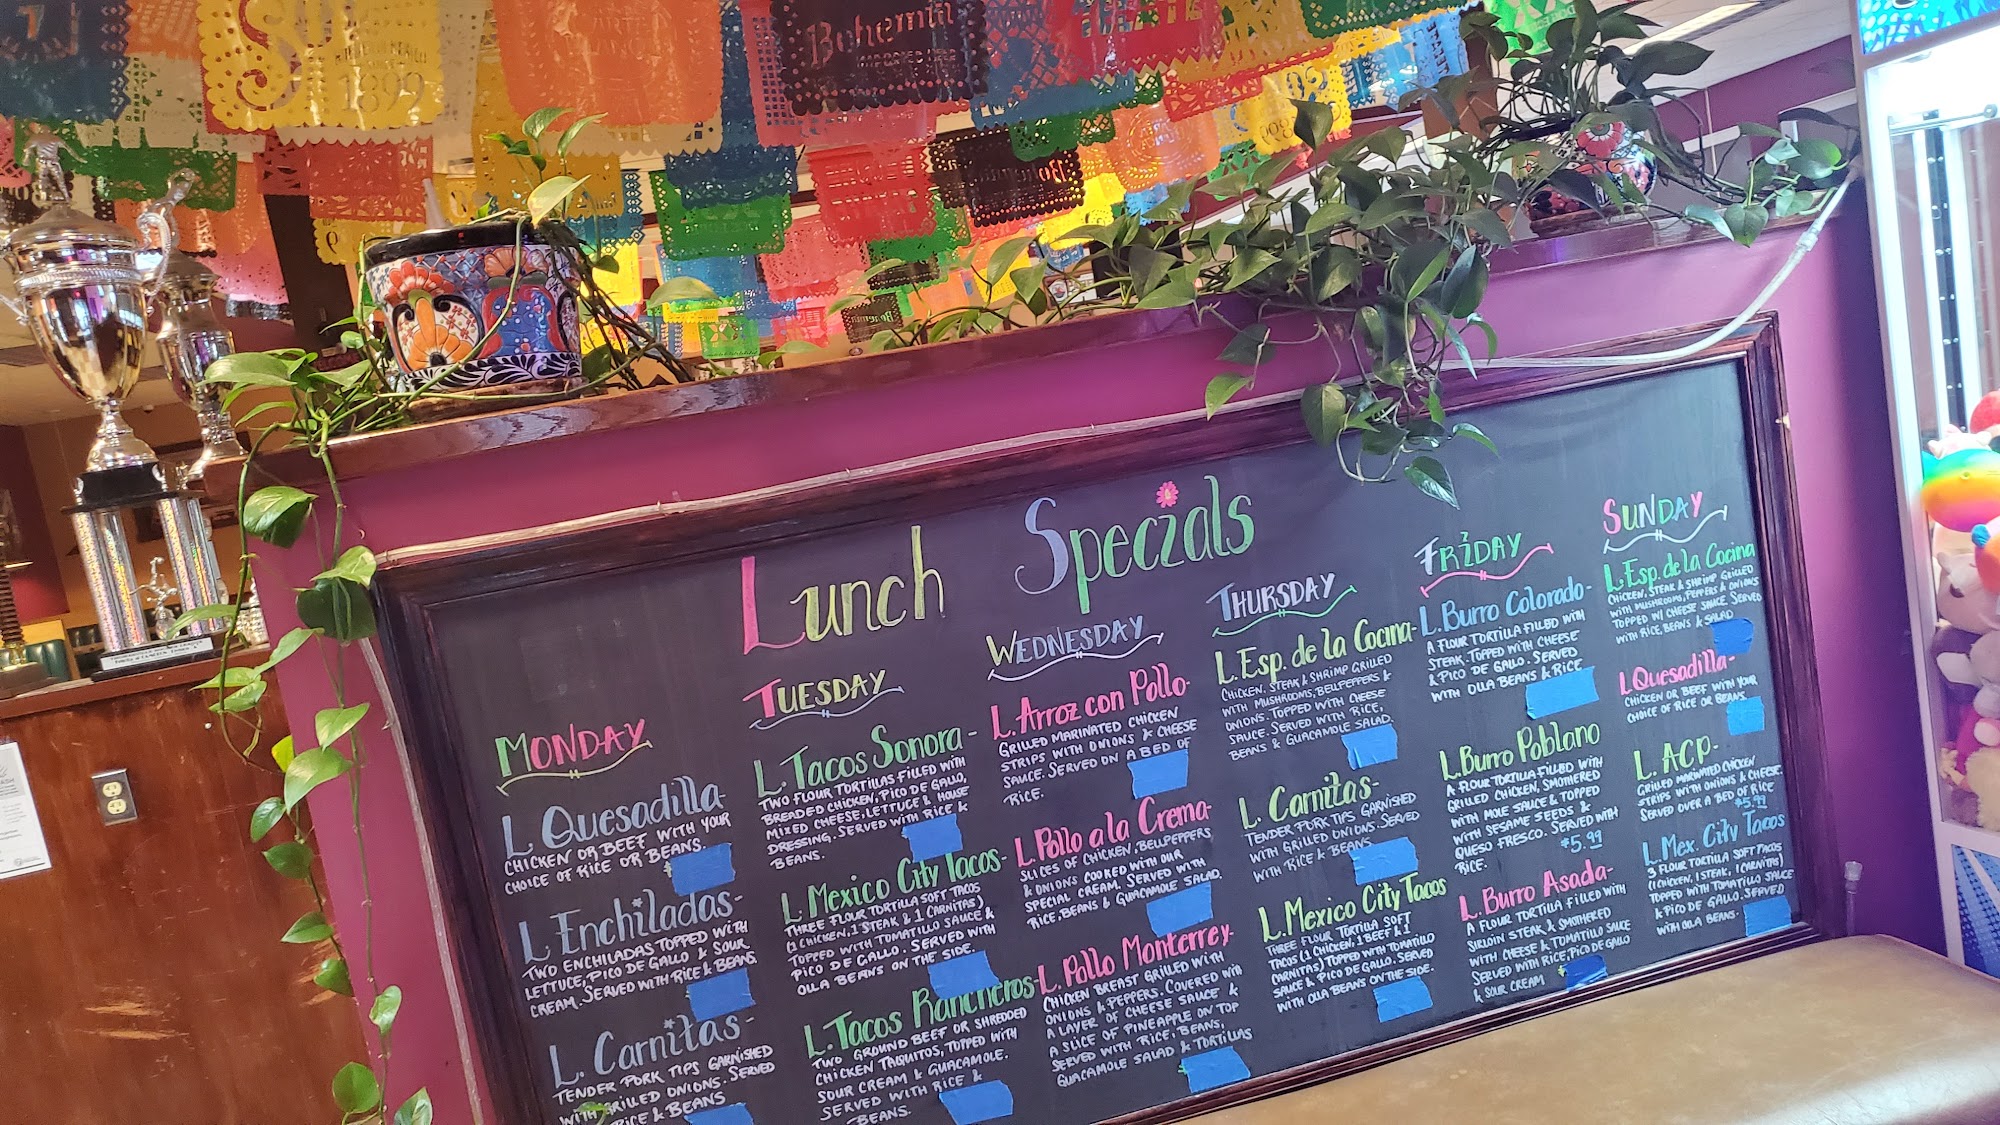 1899
Bohemia
Bohemia
Lunch Specials
MONDAY
L. Quesadilla-
CHICKEN OR BEEF WITH YOUR
CHOICE OF RICE OR BEANS.
L. Enchiladas-
TWO ENCHILADAS TOPPED WITH
LETTUCE, PICO DE GALLO & SOUR
CREAM. SERVED WITH RICE & BEANS.
L. Carnitas-
TENDER PORK TIPS GARNISHED
WITH GRILLED ONIONS. SERVED
RICE & BEANS
TUESDAY
L. Tacos Sonora-
TWO FLOUR TORTILLAS FILLED WITH
BREADED CHICKEN, PICO DE GALLO,
MIXED CHEESE, LETTUCE & HOUSE
DRESSING. SERVED WITH RICE &
BEANS.
L. Mexico City Tacos-
THREE FLOUR TORTILLA SOFT TACOS
(1 CHICKEN, 1 STEAK & 1 CARNITAS)
TOPPED WITH TOMATILLO SAUCE &
PICO DE GALLO. SERVED WITH
OLLA BEANS ON THE SIDE.
L. Tacos Rancheros-
TWO GROUND BEEF OR SHREDDED
CHICKEN TAQUITOS, TOPPED WITH
SOUR CREAM & GUACAMOLE.
SERVED WITH RICE &
BEANS.
WEDNESDAY
L. Arroz con Pollo-
GRILLED MARINATED CHICKEN
STRIPS WITH ONIONS & CHEESE
SAUCE. SERVED ON A BED OF
RICE.
L. Pollo a la Crema-
SLICES OF CHICKEN, BELLPEPPERS
& ONIONS COOKED WITH OUR
SPECIAL CREAM. SERVED WITH
RICE, BEANS & GUACAMOLE SALAD.
L. Pollo Monterrey-
CHICKEN BREAST GRILLED WITH
ONIONS & PEPPERS. COVERED WITH
A LAYER OF CHEESE SAUCE &
A SLICE OF PINEAPPLE ON TOP
SERVED WITH RICE, BEANS,
GUACAMOLE SALAD & TORTILLAS
THURSDAY
L. Esp. de la Cocina-
CHICKEN, STEAK & SHRIMP GRILLED
WITH MUSHROOMS, BELLPEPPERS &
ONIONS. TOPPED WITH CHEESE
SAUCE. SERVED WITH RICE,
BEANS & GUACAMOLE SALAD.
L. Carnitas-
TENDER PORK TIPS GARNISHED
WITH GRILLED ONIONS. SERVED
WITH RICE & BEANS.
L. Mexico City Tacos
THREE FLOUR TORTILLA SOFT
TACOS (1 CHICKEN, 1 BEEF & 1
CARNITAS) TOPPED WITH TOMATILLO
SAUCE & PICO DE GALLO. SERVED
WITH OLLA BEANS ON THE SIDE.
FRIDAY
L. Burro Colorado-
A FLOUR TORTILLA FILLED WITH
STEAK. TOPPED WITH CHEESE
& PICO DE GALLO. SERVED
WITH OLLA BEANS & RICE
L. Burro Poblano
A FLOUR TORTILLA FILLED WITH
GRILLED CHICKEN, SMOTHERED
WITH MOLE SAUCE & TOPPED
WITH SESAME SEEDS &
QUESO FRESCO. SERVED WITH
RICE. $5.99
L. Burro Asada-
A FLOUR TORTILLA FILLED WITH
SIRLOIN STEAK & SMOTHERED
WITH CHEESE & TOMATILLO SAUCE
SERVED WITH RICE, PICO DE GALLO
& SOUR CREAM
SUNDAY
L. Esp. de la Cocina
CHICKEN, STEAK & SHRIMP GRILLED
WITH MUSHROOMS, PEPPERS & ONIONS
TOPPED W/ CHEESE SAUCE. SERVED
WITH RICE, BEANS & SALAD
L Quesadilla-
CHICKEN OR BEEF WITH YOUR
CHOICE OF RICE OR BEANS.
L. ACP-
GRILLED MARINATED CHICKEN
STRIPS WITH ONIONS & CHEESE.
SERVED OVER A BED OF RICE
$5.99
L. Mex. City Tacos
3 FLOUR TORTILLA SOFT TACOS
(1 CHICKEN, 1 STEAK, 1 CARNITAS)
TOPPED WITH TOMATILLO SAUCE
& PICO DE GALLO. SERVED
WITH OLLA BEANS.